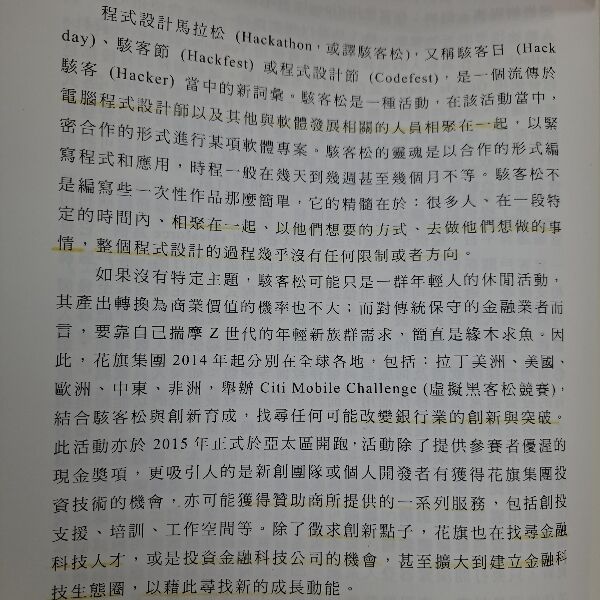 程式設計馬拉松 (Hackathon，或譯駭客松)，又稱駭客日 (Hack
day)、駭客節 (Hackfest) 或程式設計節 (Codefest)，是一個流傳於
駭客 (Hacker) 當中的新詞彙。駭客松是一種活動，在該活動當中，
電腦程式設計師以及其他與軟體發展相關的人員相聚在一起，以緊
密合作的形式進行某項軟體專案。駭客松的靈魂是以合作的形式編
寫程式和應用，時程一般在幾天到幾週甚至幾個月不等。駭客松不
是編寫些一次性作品那麼簡單，它的精髓在於：很多人、在一段特
定的時間內、相聚在一起、以他們想要的方式、去做他們想做的事
情，整個程式設計的過程幾乎沒有任何限制或者方向。
如果沒有特定主題，駭客松可能只是一群年輕人的休閒活動，
其產出轉換為商業價值的機率也不大；而對傳統保守的金融業者而
言，要靠自己揣摩 Z 世代的年輕新族群需求，簡直是緣木求魚。因
此，花旗集團 2014 年起分別在全球各地，包括：拉丁美洲、美國、
歐洲、中東、非洲，舉辦 Citi Mobile Challenge (虛擬黑客松競賽)，
結合駭客松與創新育成，找尋任何可能改變銀行業的創新與突破。
此活動亦於 2015 年正式於亞太區開跑，活動除了提供參賽者優渥的
現金獎項，更吸引人的是新創團隊或個人開發者有獲得花旗集團投
資技術的機會，亦可能獲得贊助商所提供的一系列服務，包括創投
支援、培訓、工作空間等。除了徵求創新點子，花旗也在找尋金融
科技人才，或是投資金融科技公司的機會，甚至擴大到建立金融科
技生態圈，以藉此尋找新的成長動能。